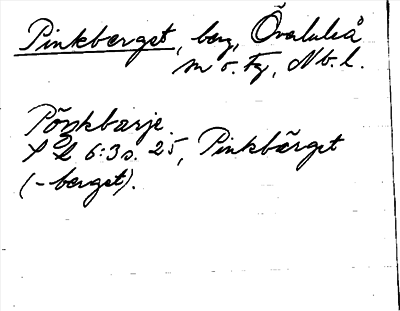 Pinkberget, berg, Överluleå
m o. Fg, Nb. l.
Pönkbarje.
6:3 s. 25, Pinkbärget
(-berget).